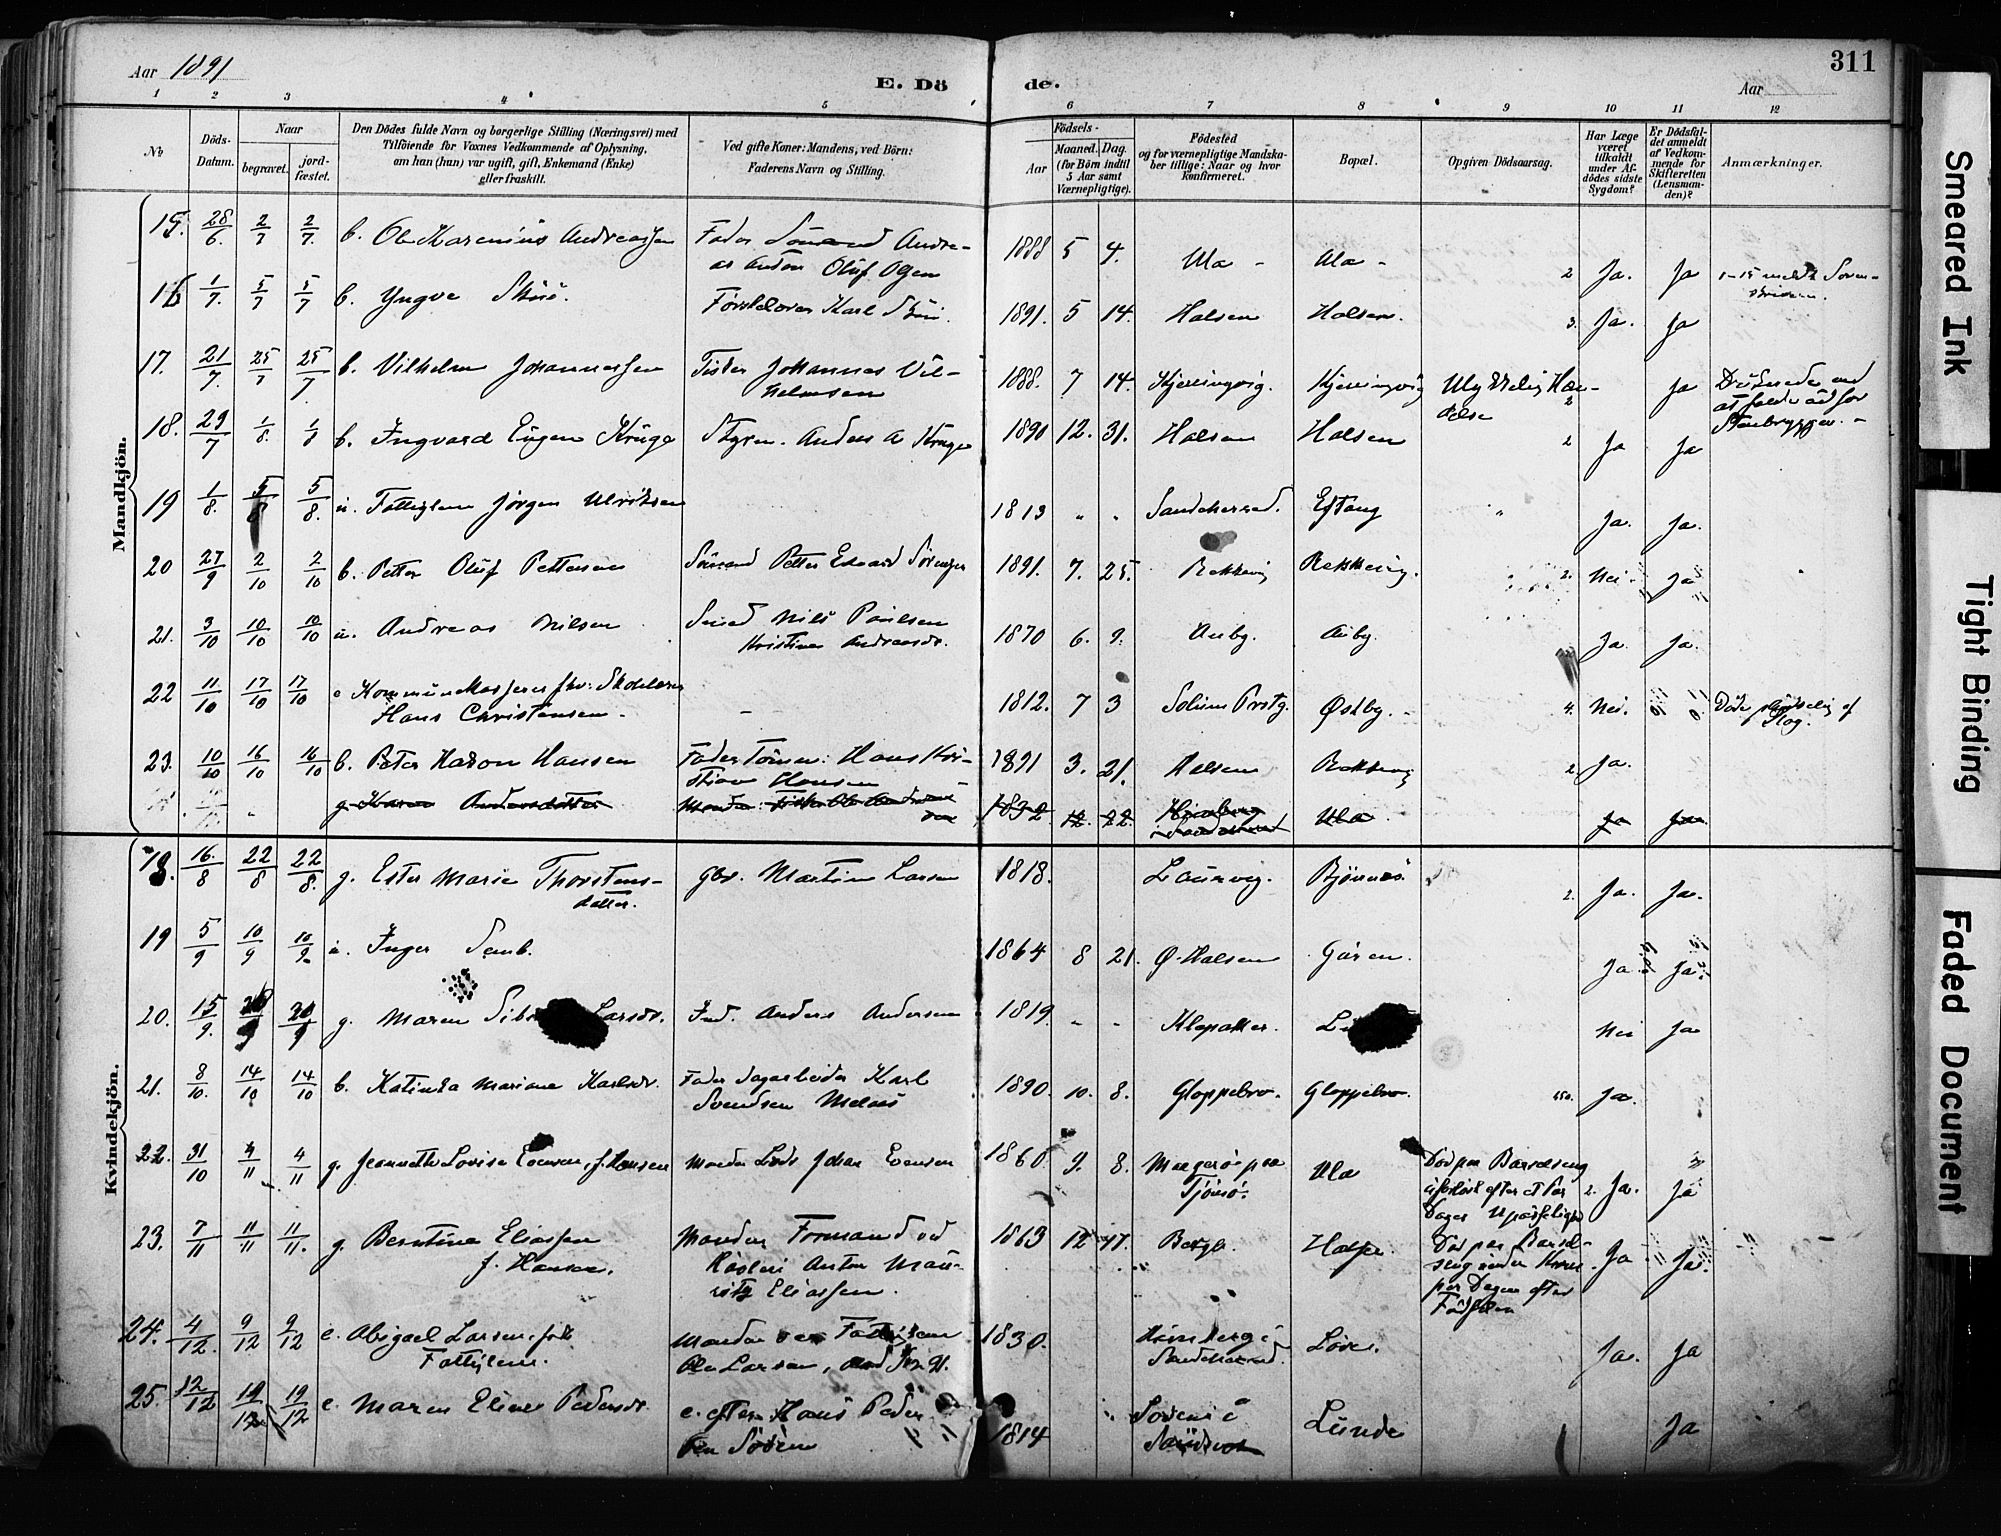 Aar 1891
E. Dö
de.
311
Aar
1 2 3 4 5 6 7 8 9 10 11 12
No
Döds-Datum.
Naar
begravet.
jord-fæstet.
Den Dödes fulde Navn og borgerlige Stilling (Næringsvei) med
Tilföiende for Voxnes Vedkommende af Oplysning,
om han (hun) var ugift, gift, Enkemand (Enke)
eller fraskilt.
Ved gifte Koner: Mandens, ved Börn:
Faderens Navn og Stilling.
Födsels-
Aar
Maaned. Dag.
(for Börn indtil
5 Aar samt
Værnepligtige).
Födested
og for værnepligtige Mandska-
ber tillige: Naar og hvor
konfirmeret.
Bopæl.
Opgiven Dödsaarsag.
Har Læge
været
tilkaldt
under Af-
dödes sidste
Sygdom?
Er Dödsfal-
det anmeldt
af Vedkom-
mende for
Skifteretten
(Lensman-
den)?
Anmærkninger.
Mandkjön.
15. 28/6. 2/7 2/7. b. Ole Karenius Andreassen Fader Sömand Andre-
as Anton Oluf Olsen 1888 5 4. Ula - Ula - 2 Ja. Ja
16 1/7. 5/7 5/7 b. Yngve 1891. 5 14. Halsen Halsen. 3. Ja. Ja
17. 21/7. 25/7 25/7 b. Vilhelm Johannessen Fisker Johannes Vil-
helmsen 1888. 7 14. Kjerringvig. Kjerringvig Ulykkelig Hæn-
delse 2 Ja
18. 29/7 1/8. 1/8 b. Ingvard Eugen Kruge Styrm. Anders A Kruge 1890 12. 31. Halsen Halsen 2 Ja Ja
19 1/8. 5/8 5/8. u. Fattiglem Jörgen Ulriksen 1813 " " Sandeherred. Eftang " Ja. Ja.
20 27/9 2/10 2/10 b. Petter Oluf Pettersen Sömand Petter Edvard Sörensen 1891. 7. 25. Rekkevig Rekkevig. 2. Nei. Ja
21. 3/10 10/10 10/10 u. Andreas Nilsen Smed Nils Paulsen
Kristine Andreasdr. 1870 6. 9. Auby. Auby. Ja. Ja.
22 11/10 17/10 17/10 e Kommunekasserer fhv. Skolelærer
Hans Christensen. - 1812. 7 3 Solum Prstg. Østby. - 4. Nei. Döde pludselig af
Slag.
23. 10/10 16/10 16/10 b. Peter Hansen Fader Tömm. Hans Kri-
stian Hansen 1891 3. 21. Halsen Rekkevig 2 Ja.
g. Karen Andersdatter 1832 12. 22. Ula Ja Ja
Kvindekjön.
18. 16./8 22/8 22/8. g. Ester Marie Thorstens-
datter. Gbr. Martin Larsen 1818. Laurvig. Bjönnes 2. Ja. Ja.
19 5/9 10/9 10/9. u. Inger Semb. 1864 8 21. Ø. Halsen Ja. Ja.
20. 15/9. 20/9 g. Maren Larsdr. Ind. Anders Andersen 1819. - - Klepaker. Nei Ja
21. 8/10. 14/10 14/10 b. Katinka Mariane Karlsdr. Fader Sagarbeider Karl
Svendsen Melaas 1890. 10. 8. Gloppebro. Gloppebro. Ja.
22. 31/10 4/11 4/11 g. Jeannette Lovise Evensen, f. Hansen Manden Lods Johan Evensen 1860. 9. 8. Margerö paa
Tjömö. Ula Död paa Barselseng
efter et Par
Dages Upasselighed 2. Ja. Ja
23. 7/11 11/11 11/11. g. Berntine Eliassen
f. Hansen. Manden Formand ved
Anton Mau-
ritz Eliassen. 1863 12 Halsen Död paa Barsel-
seng
par Dagen efter
Födselen Ja Ja.
24. 4/12. 9/12 9/12 e. Abigael Larsen,
Fattiglem. Manden var Fattiglem
Ole Larsen, 1830. Himberg i
Sandeherred. Ja. Ja
25. 12/12 19/12 19/12 e. Maren Eline Pedersdr. e. efter Hans Peder
1814 Lunde Ja
Smeared Ink
Tight Binding
Faded Document